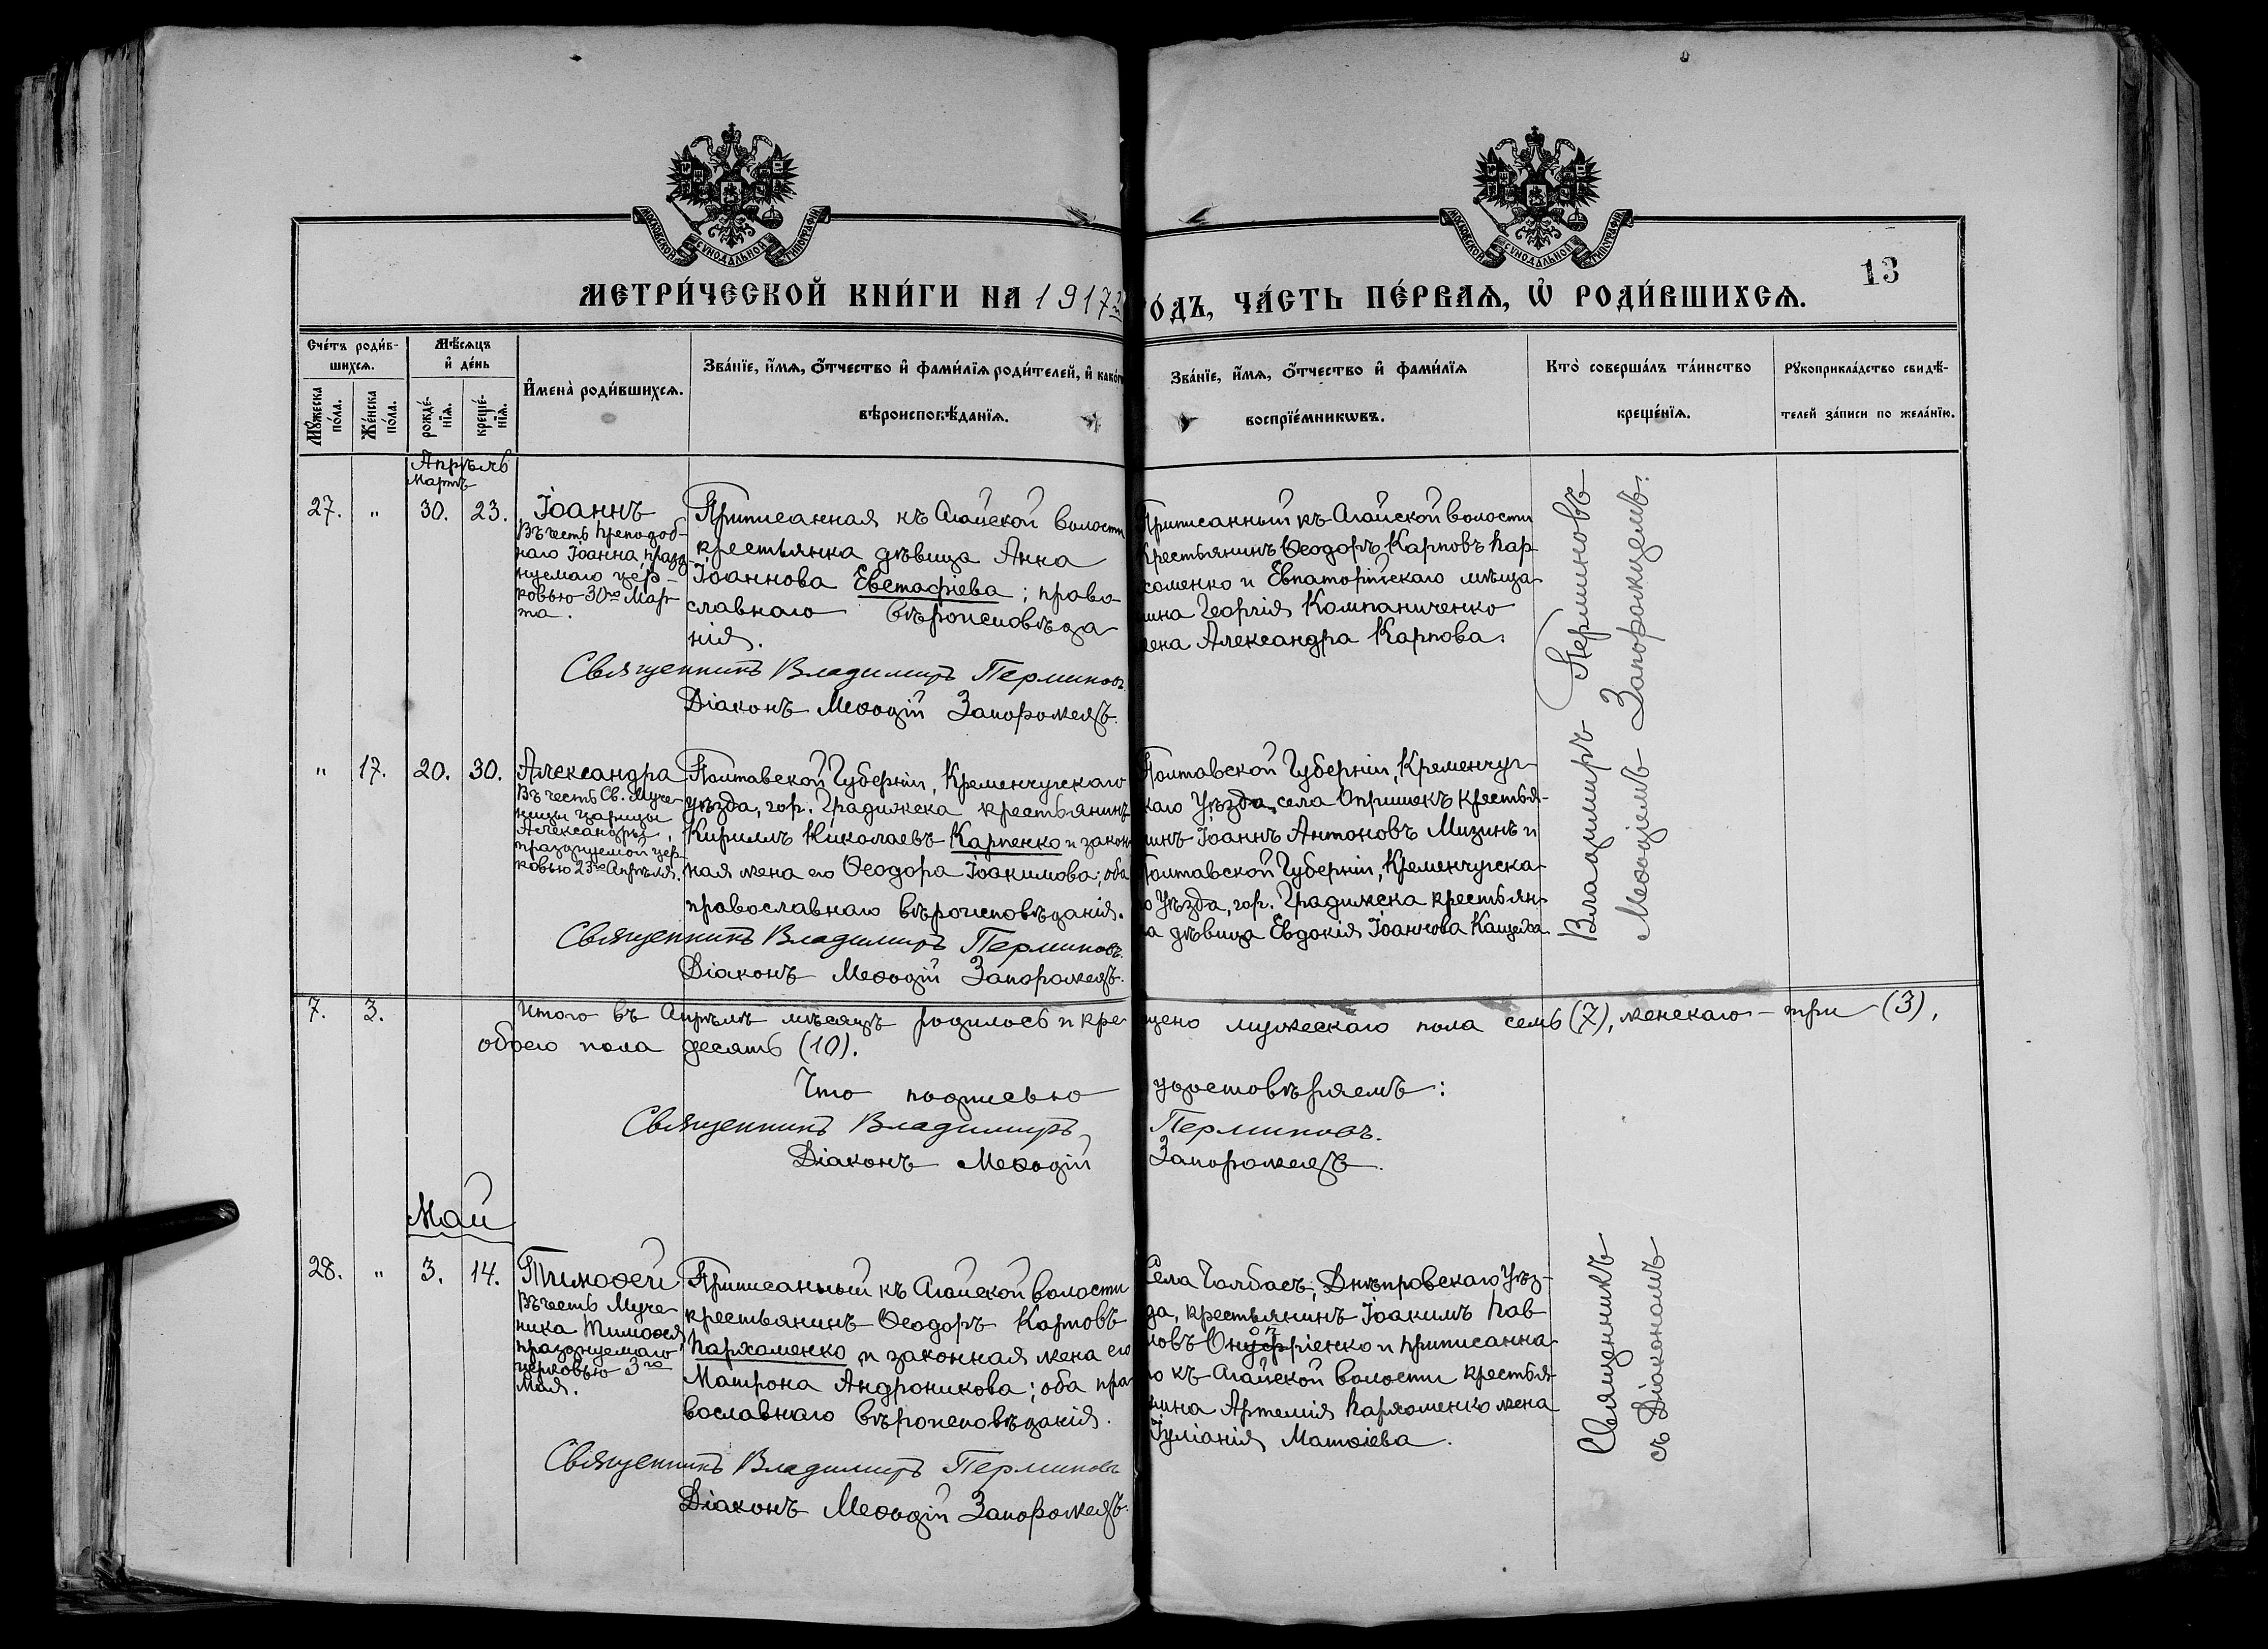 МОСКОВСКОЙ СУНОДАЛЬНОЙ ТИПОГРАФІИ
МОСКОВСКОЙ СУНОДАЛЬНОЙ ТИПОГРАФІИ
13
МЕТРИ́ЧЕСКОЙ КНИ́ГИ НА 1917й
О́ДЪ, ЧА́СТЬ ПЕ́РВАѦ, Ѡ҆ РОДИ́ВШИХСѦ.
Сче́тъ роди́в-
шихсѧ.
Мꙋ́жеска по́ла.
Же́нска по́ла.
Мѣ́сѧцъ
и҆ де́нь
рожде́-
нїѧ.
креще́-
нїѧ.
И҆мена̀ роди́вшихсѧ.
Зва́нїе, и҆́мѧ, ѻ҆́тчество и҆ фами́лїѧ роди́телей, и҆ како́гѡ
вѣроисповѣ́данїѧ.
Зва́нїе, и҆́мѧ, ѻ҆́тчество и҆ фами́лїѧ
воспрїе́мникѡвъ.
Кто̀ соверша́лъ та́инство
креще́нїѧ.
Рꙋкоприкла́дство свидѣ́-
телей за́писи по жела́нїю.
Апрѣль
Мартъ
27.
"
30.
23.
Іоаннъ
Въ честь преподоб-
наго Іоанна, празд-
нуемаго цер-
ковью 30го Мар-
та.
Приписанная къ Агайской волости
крестьянка дѣвица Анна
Іоаннова Евстафіева; право-
славнаго вѣроисповѣда
нія.
Священникъ Владимиръ Перминовъ.
Діаконъ Меѳодій Запорожецъ.
Приписанный къ Агайской волости
крестьянинъ Ѳеодоръ Карповъ Пар-
хоменко и Евпаторійскаго мѣща-
нина Георгія Компаниченко
жена Александра Карпова.
"
17.
20.
30.
Александра
Въ честь Св. Муче-
ницы царицы
Александры,
празднуемой цер-
ковью 23го Апрѣля.
Полтавской Губерніи, Кременчугскаго
уѣзда, гор. Градижска крестьянинъ
Кириллъ Николаевъ Карпенко и закон
ная жена его Ѳеодора Іоакимова; оба
православнаго вѣроисповѣданія.
Священникъ Владимиръ Перминовъ.
Діаконъ Меѳодій Запорожецъ.
Полтавской Губерніи, Кременчуг-
скаго Уѣзда, села Опришекъ крестья-
нинъ Іоаннъ Антоновъ Мизинъ и
Полтавской Губерніи, Кременчугска-
го Уѣзда, гор. Градижска крестьян-
ка дѣвица Евдокія Іоаннова
Владимиръ Перминовъ
Меѳодіемъ Запорожцемъ.
7.
3.
Итого въ Апрѣлѣ мѣсяцѣ родилось и кре
щено мужескаго пола семь (7), женскаго - три (3),
обоего пола десять (10).
Что подписью удостовѣряемъ:
Священникъ Владимиръ Перминовъ.
Діаконъ Меѳодій Запорожецъ.
Май
28.
"
3.
14.
Тимоѳей
Въ честь Муче-
ника Тимоѳея,
празднуемаго
церковью 3го
Мая.
Приписанный къ Агайской волости
крестьянинъ Ѳеодоръ Карповъ
Пархоменко и законная жена его
Матрона Андроникова; оба пра-
вославнаго вѣроисповѣданія.
Священникъ Владимиръ Перминовъ
Діаконъ Меѳодій Запорожецъ.
Села Чалбасъ, Днѣпровскаго Уѣз-
да, крестьянинъ Іоакимъ Пав-
ловъ Онуфріенко и приписанна-
го къ Агайской волости крестья-
нина Артемія Пархоменко жена
Іуліанія Матѳіева.
Священникъ
съ Діакономъ